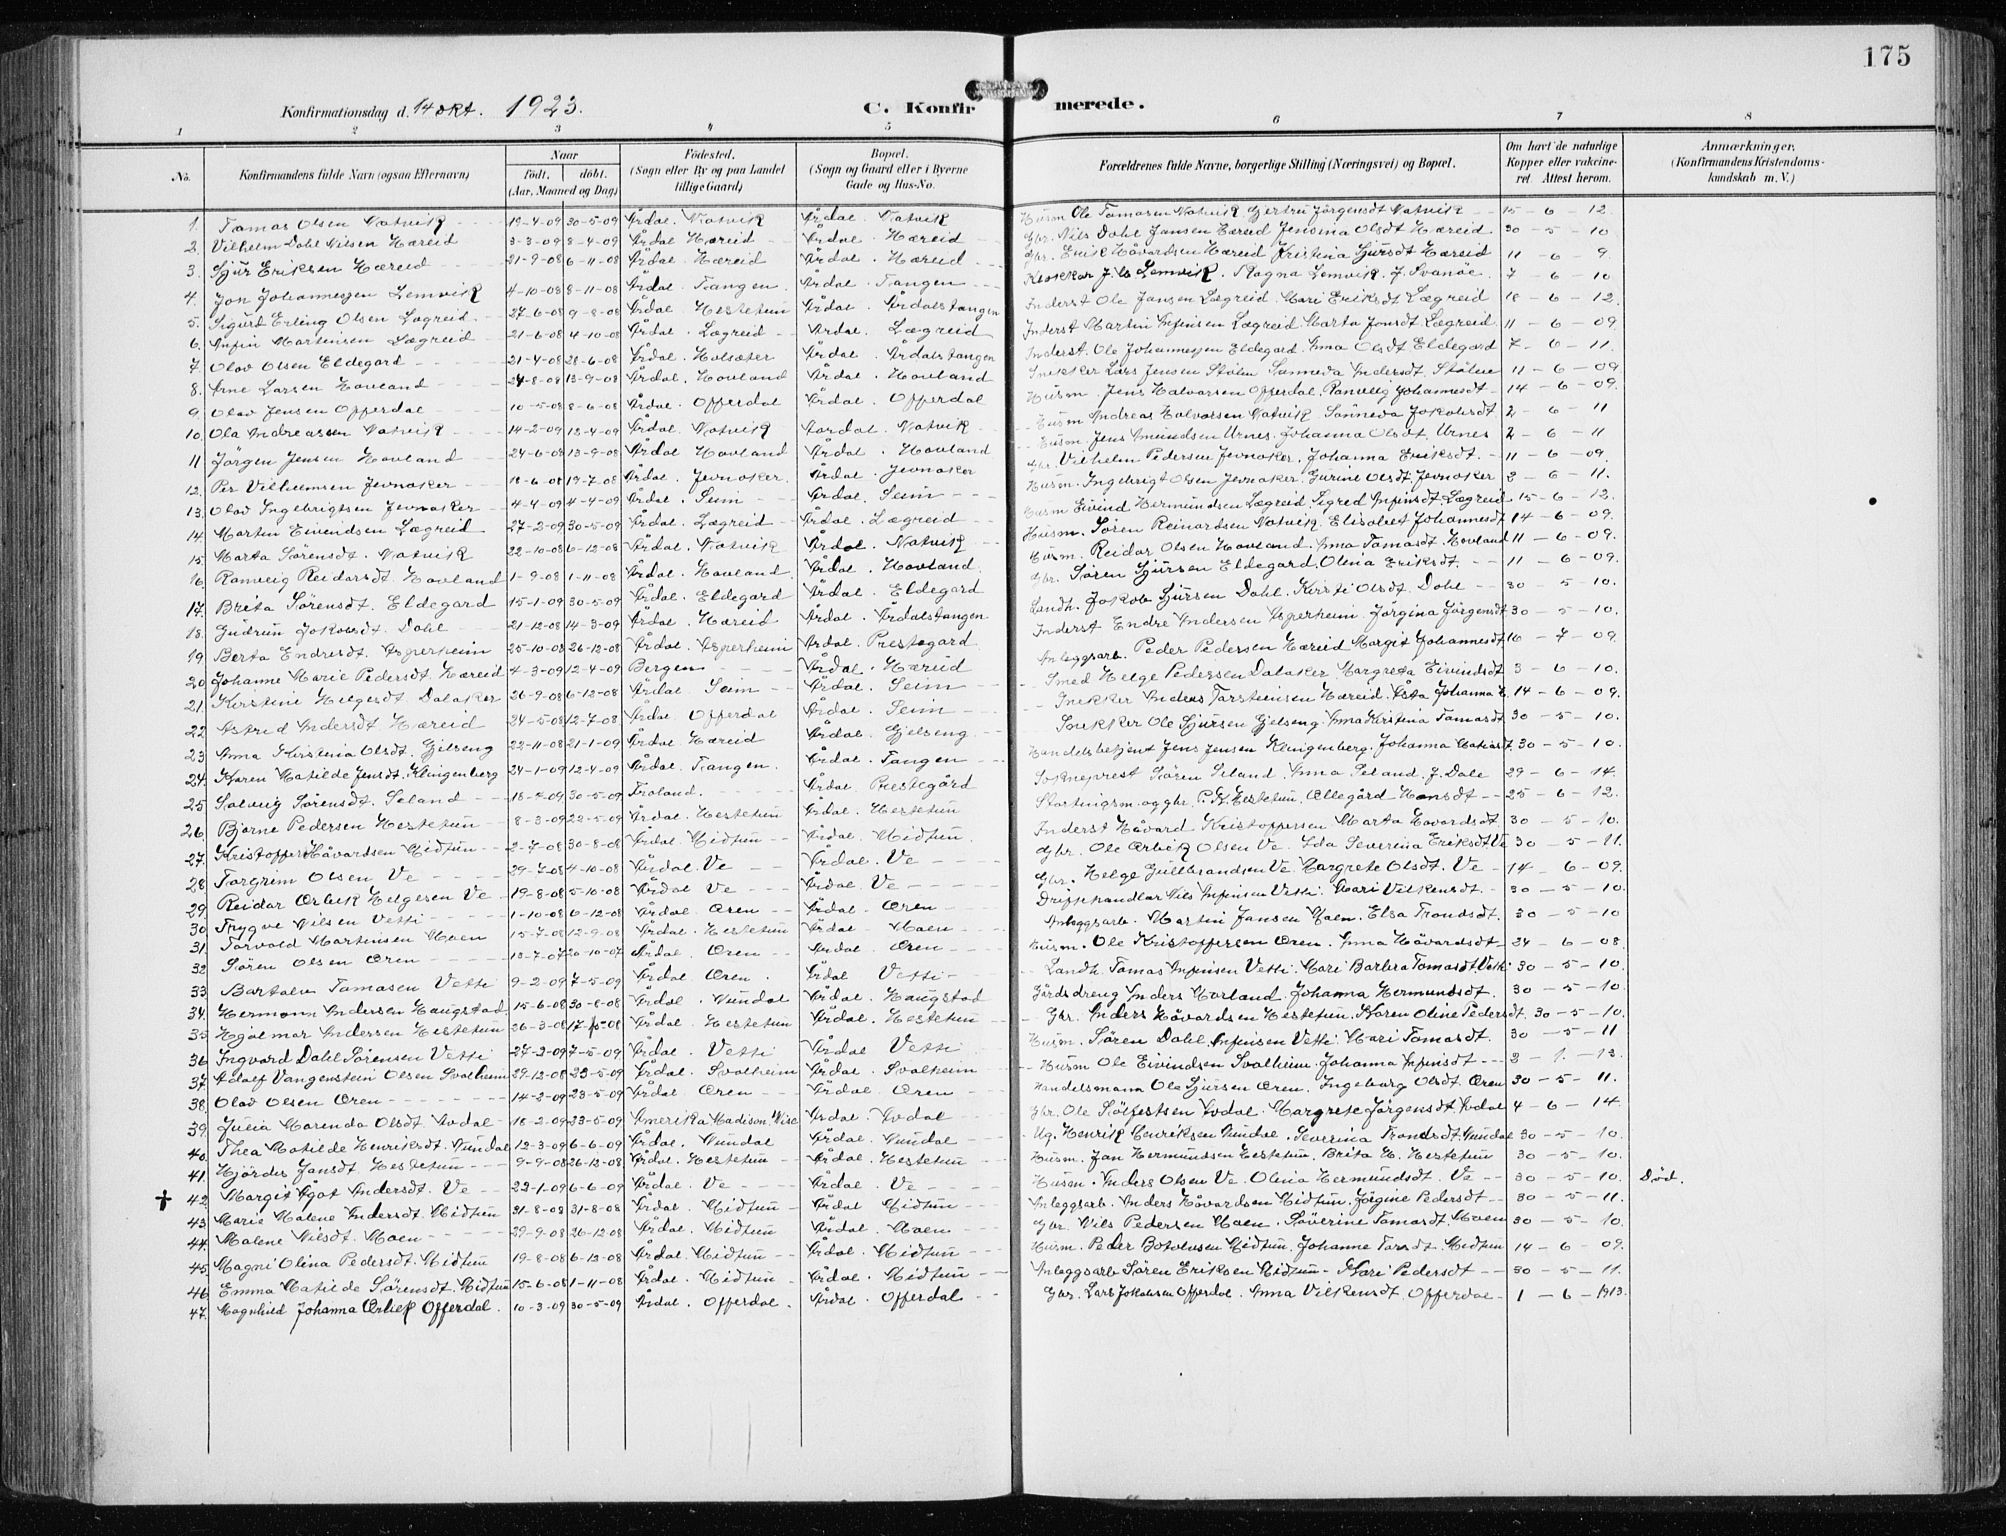 175
Konfirmationsdag d. 14 okt. 1923.
C. Konfirmerede.
1 2 3 4 5 6 7 8
No. Konfirmandens fulde Navn (ogsaa Efternavn) Naar Født. døbt. (Aar, Maaned og Dag) Fødested. (Sogn eller By og paa Landet tillige Gaard) Bopæl. (Sogn og Gaard eller i Byerne Gade og Hus-No. Forældrenes fulde Navne, borgerlige Stilling (Næringsvei) og Bopæl. Om havt de naturlige Kopper eller vaccineret. Attest herom. Anmærkninger. (Konfirmandens Kristendomskundskab m. V.)
1. Tamas Olsen Natvik 19-4-09 30-5-09 Årdal. Natvik Årdal. Natvik Husm Ole Tamasen Natvik Gjertru Jörgensdt Natvik 15-6-12
2. Vilhelm Dahl Nilsen Hæreid 3-3-09 8-4-09 Årdal Hæreid Årdal. Hæreid Gbr. Nils Dahl Jansen Hæreid Jensina Olsdt Hæreid 30-5-10
3. Sjur Eriksen Hæreid 21-9-08 6-11-08 Årdal. Hæreid Årdal. Hæreid Gbr. Erik Håvardsen Hæreid Kristina Sjursdt Hæreid 11-6-9
4. Jon Johannessen Lemvik 4-10-08 8-11-08 Årdal. Tangen Årdal. Tangen J. Lemvik. Ragna Lemvik f. Svanöe 7-6-10
5. Sigurd Erling Olsen Lægreid 27-6-08 9-8-08 Årdal Hestetun Årdal. Årdalstangen Inderst Ole Jansen Lægreid. Mari Eriksdt Lægreid 18-6-12
6. Anfin Martinsen Lægreid 21-6-08 4-10-08 Årdal. Lægreid Årdal. Lægreid Inderst Martin Anfinsen Lægreid Marta Jonsdt Lægreid 11-6-09
7. Olav Olsen Eldegard 21-4-08 28-6-08 Årdal. Holsæter Årdal. Årdalstangen Inderst. Ole Johannessen Eldegard. Anna Olsdt Eldegard 7-6-11
8. Arne Larsen Hovland 24-8-08 13-9-08 Årdal. Hovland Årdal. Hovland Snekker Lars Jensen Stölen Sanneva Andersdt. Stölen 11-6-09
9. Olav Jensen Offerdal 10-5-08 8-6-08 Årdal. Offerdal Årdal. Offerdal Husm Jens Halvarsen Offerdal. Ranveig Johannesdt 14-6-09
10. Ola Andreassen Natvik 14-2-09 12-4-09 Årdal. Natvik Aardal. Natvik Husm Andreas Halvorsen Natvik. Sanneva Jokobsdt 2-6-11
11 Jörgen Jensen Hovland 24-6-08 13-9-08 Årdal Hovland Årdal. Hovland Husm. Jens Amundsen Urnes. Johanna Olsdt. Urnes 2-6-11
12. Per Vilhelmsen Jevnaker 18-6-08 19-7-08 Årdal. Jevnaker Årdal. Jevnaker Gbr. Vilhelm Pedersen Jevnaker. Johanna Eriksdt. 11-6-09.
13. Olav Ingebrigtsen Jevnaker 4-4-09 4-4-09 Årdal. Seim Årdal. Seim Husm. Ingebrigt Olsen Jevnaker. Gurine Olsdt. Jevnaker 2-6-11.
14. Martin Eivindsen Lægreid 27-2-09 30-5-09 Årdal. Lægreid Årdal. Lægreid Husm Eivind Hermundsen Lægreid. Sigred Anfinsdt. Lægreid 15-6-12.
15 Marta Sörensdt. Natvik 22-10-08 6-12-08 Årdal. Natvik Årdal. Natvik Husm. Sören Reinardsen Natvik. Elisabet Johannesdt 14-6-09.
16. Ranveig Reidarsdt. Hovland 1-9-08 1-11-08 Årdal. Hovland Årdal. Hovland Husm. Reidar Olsen Hovland. Anna Tamasdt. Hovland 11-6-09.
17. Brita Sörensdt. Eldegard 15-1-09 30-5-09 Årdal. Eldegard Årdal. Eldegard Gbr. Sören Sjursen Eldegard. Olina Eriksdt. 11-6-09.
18. Gudrun Jokobsdt. Dahl 21-12-08 14-3-09 Årdal. Hæreid Årdal. Årdalstangen Landh. Jakob Sjursen Dahl. Kirsti Olsdt. Dahl 30-5-10.
19 Berta Endresdt. Asperheim 25-10-08 26-12-08 Årdal. Asperheim Årdal. Prestegard Inderst Endre Andersen Asperheim. Jörgina Jörgensdt 30-5-10.
20 Johanne Marie Pedersdt. Hæreid 4-3-09 12-4-09 Bergen Årdal. Hæreid Anleggsarb. Peder Pedersen Hæreid Margit Johannesdt. 16-7-09
21. Kirstine Helgesdt. Dalaker 26-9-08 6-12-08 Årdal Seim Årdal. Seim Smed Helge Pedersen Dalaker. Margreta Eivindsdt 3-6-10.
22 Astrid Andersdt. Hæreid 24-5-08 12-7-08 Årdal. Offerdal Årdal. Seim Snekker Anders Tarsteinsen Hæreid. Åsta Johanna 14-6-09.
23 Anna Kirstina Olsdt. Gjelseng 22-11-08 21-1-09 Årdal Hæreid Årdal. Gjelseng Snekker Ole Sjursen Gjelseng. Anna Kirstina Tamasdt 30-5-10.
24. Karen Matilde Jensdt. Klingenberg 24-1-09 12-4-09 Årdal. Tangen. Årdal. Tangen Handelsbetjent Jens Jensen Klingenberg. Johanna 30-5-10.
25 Solveig Sörensdt. Seland 18-4-09 30-5-09 Froland. Årdal Prestegård Sokneprest Sören Seland. Anna Seland. f. Dale 29-6-14.
26. Bjarne Pedersen Hestetun 8-3-09 22-5-09 Årdal. Hestetun Årdal. Hestetun Stortingsm. og gbr. P. Hestetun. Ællegård Hansdt 25-6-12.
27. Kristoffer Håvardsen Midtun 2-7-08 30-8-08 Årdal. Midtun Årdal. Midtun Inderst Håvard Kristoffersen Marta Havardsdt 30-5-10.
28 Torgrim Olsen Ve 29-7-08 4-10-08 Årdal. Ve Årdal. Ve Gbr. Ole Orbek Olsen Ve. Ida Severina Eriksdt Ve 30-5-11.
29. Reidar Orbek Helgesen Ve 19-8-08 5-10-08 Årdal Ve Årdal. Ve Gbr. Helge Gulbrandsen Ve Margrete Olsdt. Ve 14-6-09.
30 Trygve Nilsen Vetti 1-10-08 6-12-08 Årdal Øren Årdal. Øren Driftehandlar Nils Anfinsen Vetti. Mari Vilkensdt. 30-5-10.
31. Torvald Martinsen Moen 15-7-08 12-9-08 Årdal. Hestetun Årdal Moen Anleggsarb. Martin Jansen Moen. Elsa Trondsdt. 30-5-10
32 Sören Olsen Øren 13-7-07 20-10-07 Årdal. Øren Årdal. Øren Husm. Ole Kristoffersen Øren. Anna Håvardsdt 24-6-08.
33. Bartolu Tamasen Vetti 9-2-09 7-5-09 Årdal Øren. Årdal Vetti Landh. Tamas Anfinsen Vetti. Mari Barbra Tomasdt Vetti 30-5-10.
34. Hermann Andersen Haugstad 15-6-08 30-8-08 Årdal. Nundal Årdal. Haugstad Gårdsdreng Anders Morland. Johanna Hermundsdt. 30-5-10.
35 Hjalmar Andersen Hestetun 26-3-08 17-5-08 Årdal. Hestetun Årdal. Hestetun Gbr. Anders Håvardsen Hestetun. Karen Oline Pedersdt. 30-5-10.
36 Ingvard Dahl Sörensen Vetti 27-2-09 7-5-09 Årdal. Vetti Årdal Vetti Husm. Sören Dahl Anfinsen Vetti. Mari Tomasdt. 30-5-11
37. Adolf Vangenstein Olsen Svalheim 29-12-08 23-5-09 Årdal. Svalheim Årdal. Svalheim Husm Ole Eivindsen Svalheim. Johanna Anfinsdt 2-1-12.
38. Olav Olsen Øren 14-2-09 23-5-09 Årdal Øren Årdal Øren Handelsmann Ole Sjursen Øren. Ingeborg Olsdt. Øren 30-5-11.
39. Julia Marenda Olsdt. Avdal 18-2-09 23-5-09 Amerika Madison, Wisc Årdal Avdal Gbr. Ole Sölfestsen Avdal. Margrete Jörgensdt. Avdal 4-6-14
40. Thea Matilde Henriksdt. Nundal 12-3-09 6-6-09 Årdal. Nundal Årdal Nundal Ug. Henrik Henriksen Nundal. Severina Trondsdt. Nundal 30-5-10.
41. Hjördis Jansdt Hestetun 9-9-08 26-12-08 Årdal. Hestetun Årdal. Hestetun Husm. Jan Hermundsen Hestetun. Brita H. Hestetun 30-5-10.
† 42. Margit Ågot Andersdt. Ve 22-1-09 6-6-09 Årdal. Ve Årdal. Ve Husm. Anders Olsen Ve. Olina Hermundsdt. Ve 30-5-10. Död.
43 Marie Malene Andersdt. Midtun 31-8-08 31-8-08 Årdal. Midtun Årdal. Midtun Anleggsarb. Anders Håvardsen Midtun. Jörgine Pedersdt 30-5-11.
44. Malene Nilsdt. Moen 29-9-08 26-12-08 Årdal. Midtun Årdal. Moen Gbr. Nils Pedersen Moen. Söverine Tamasdt. Moen 30-5-10.
45. Magni Olina Pedersdt. Midtun 19-8-08 6-12-08 Årdal. Midtun Årdal. Midtun Husm. Peder Botolvsen Midtun. Johanne Midtun 14-6-09.
46. Emma Matilde Sörensdt. Midtun 15-6-08 1-11-08 Årdal. Midtun Årdal. Midtun Anleggsarb Sören Eriksen Midtun. Kari Pedersdt 30-5-11.
47. Magnhild Johanna Orbek Offerdal. 10-3-09 30-5-09 Årdal. Offerdal. Årdal. Offerdal Gbr. Lars Jokobsen Offerdal. Anna Vilkensdt. Offerdal 1-6-1913.